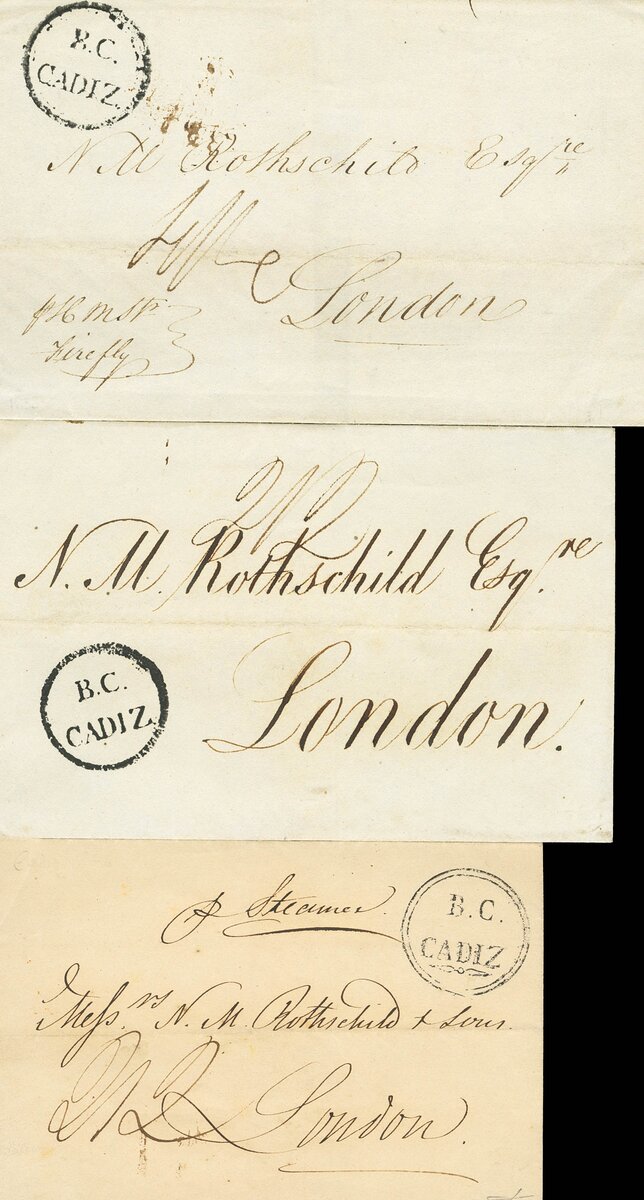 B.C.
CADIZ
N M Rothschild Esqre
London
p H M Sp
Firefly
2/2
N. M. Rothschild Esq.re
B.C.
CADIZ
London.
p Steamer
B.C.
CADIZ
Messrs N. M. Rothschild & Sons.
2/2
London.